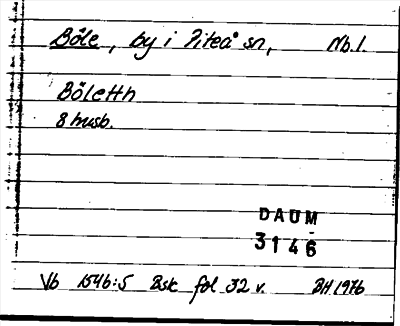 Böle, by i Piteå sn, Nb.l.
Böletth
8 husb.
DAUM
3146
Vb 1546:5 Bsk fol 32 v. BH 1976